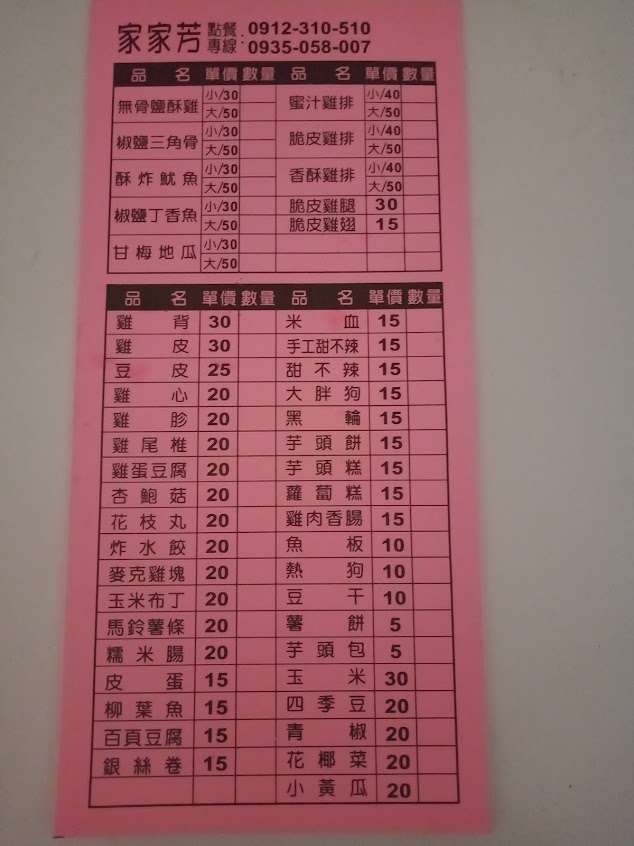 家家芳 點餐專線：0912-310-510
0935-058-007
品名 單價 數量 品名 單價 數量
無骨鹽酥雞 小/30 大/50 蜜汁雞排 小/40 大/50
椒鹽三角骨 小/30 大/50 脆皮雞排 小/40 大/50
酥炸魷魚 小/30 大/50 香酥雞排 小/40 大/50
椒鹽丁香魚 小/30 大/50 脆皮雞腿 30
脆皮雞翅 15
甘梅地瓜 小/30 大/50
品名 單價 數量 品名 單價 數量
雞背 30 米血 15
雞皮 30 手工甜不辣 15
豆皮 25 甜不辣 15
雞心 20 大胖狗 15
雞胗 20 黑輪 15
雞尾椎 20 芋頭餅 15
雞蛋豆腐 20 芋頭糕 15
杏鮑菇 20 蘿蔔糕 15
花枝丸 20 雞肉香腸 15
炸水餃 20 魚板 10
麥克雞塊 20 熱狗 10
玉米布丁 20 豆干 10
馬鈴薯條 20 薯餅 5
糯米腸 20 芋頭包 5
皮蛋 15 玉米 30
柳葉魚 15 四季豆 20
百頁豆腐 15 青椒 20
銀絲卷 15 花椰菜 20
小黃瓜 20